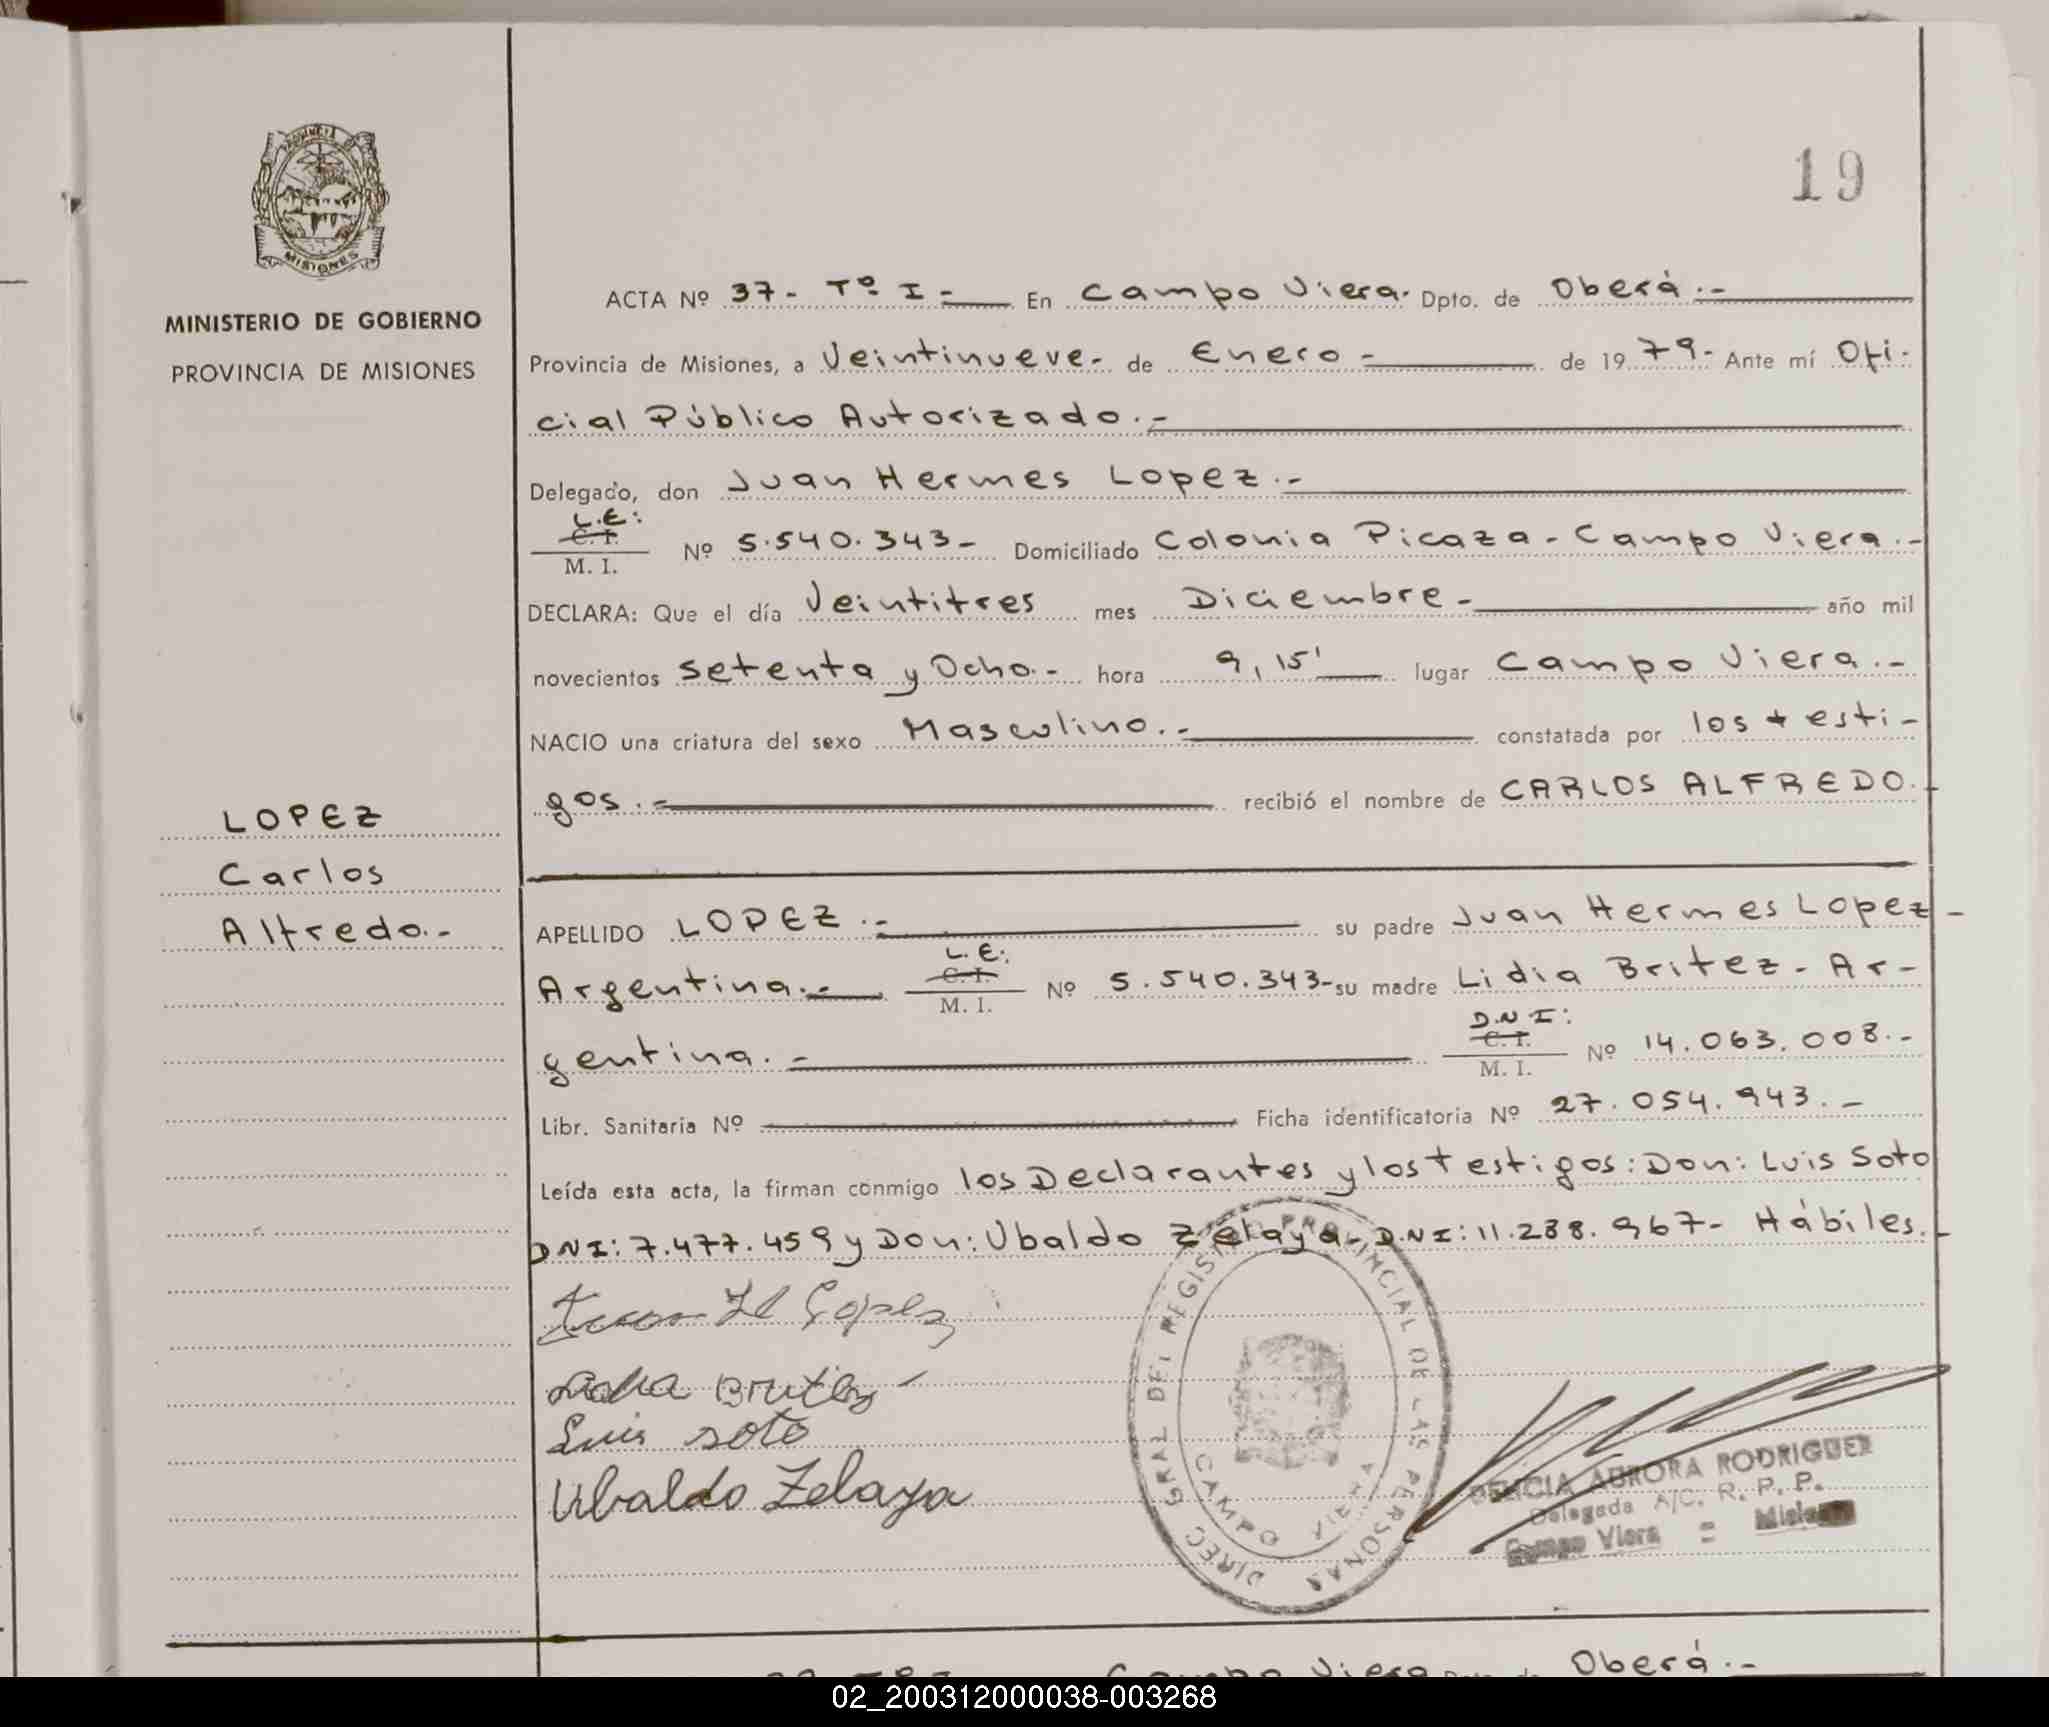 PROVINCIA
MISIONES
MINISTERIO DE GOBIERNO
PROVINCIA DE MISIONES
LOPEZ
Carlos
Alfredo.-
19
ACTA Nº 37- Tº I - En Campo Viera. Dpto. de Oberá.-
Provincia de Misiones, a Veintinueve- de Enero - de 1979- Ante mí Ofi-
cial Público Autorizado.-
Delegado, don Juan Hermes Lopez.-
L.E:
C. I.
M. I. Nº 5.540.343- Domiciliado Colonia Picaza- Campo Viera.-
DECLARA: Que el día Veintitres mes Diciembre - año mil
novecientos setenta y Ocho.- hora 9,15' lugar Campo Viera.-
NACIO una criatura del sexo Masculino.- constatada por los testi-
gos.- recibió el nombre de CARLOS ALFREDO.-
APELLIDO LOPEZ.- su padre Juan Hermes Lopez -
L.E:
C. I.
Argentina.- M. I. Nº 5.540.343- su madre Lidia Britez- Ar-
D.N I:
C. I.
gentina.- M. I. Nº 14.063.008.-
Libr. Sanitaria Nº Ficha identificatoria Nº 27.054.943.-
Leída esta acta, la firman conmigo los Declarantes y los testigos: Don: Luis Soto
DNI: 7.477.459 y Don: Ubaldo Zelaya- D.NI: 11.238.967- Hábiles.-
Juan H Lopez
Lidia Britez
Luis soto
Ubaldo Zelaya
DIREC GRAL DEL REGISTRO PROVINCIAL DE LAS PERSONAS
CAMPO VIERA
DELICIA AURORA RODRIGUEZ
Delegada A/C. R. P. P.
Campo Viera = Misiones
Campo Viera Dpto. de Oberá.-
02_200312000038-003268